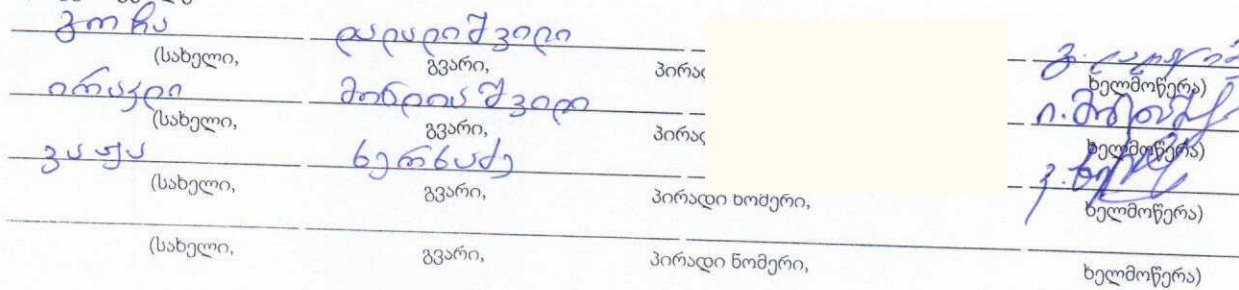 გოჩა დალაქიშვილი
(სახელი, გვარი, პირად ხელმოწერა)
ირაკლი მინდიაშვილი ი.
(სახელი, გვარი, პირად ხელმოწერა)
ვაჟა ხერხაძე ვ.
(სახელი, გვარი, პირადი ნომერი, ხელმოწერა)
(სახელი, გვარი, პირადი ნომერი, ხელმოწერა)